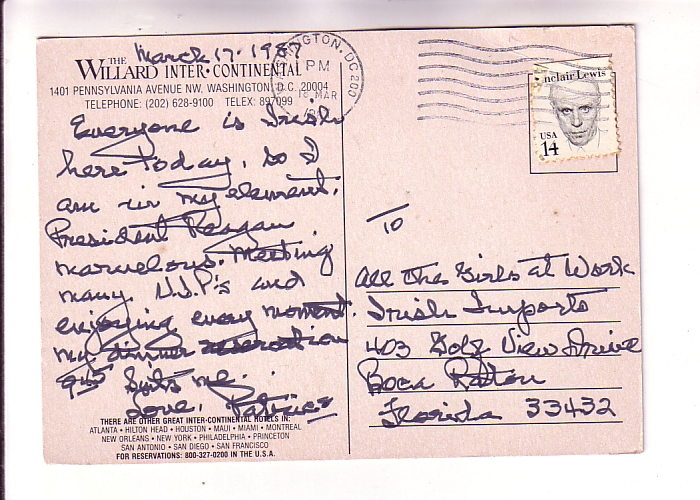 March 17. 1987
THE
WILLARD INTER·CONTINENTAL
1401 PENNSYLVANIA AVENUE NW, WASHINGTON, D.C. 20004
TELEPHONE: (202) 628-9100 TELEX: 897099
Everyone is Irish
here today, so I
am in my element.
President Reagan
marvelous. Meeting
many V.I.P's and
enjoying every moment.
my dinner reservation
suits me.
Love, Patrice
THERE ARE OTHER GREAT INTER·CONTINENTAL HOTELS IN:
ATLANTA • HILTON HEAD • HOUSTON • MAUI • MIAMI • MONTREAL
NEW ORLEANS • NEW YORK • PHILADELPHIA • PRINCETON
SAN ANTONIO • SAN DIEGO • SAN FRANCISCO
FOR RESERVATIONS: 800-327-0200 IN THE U.S.A.
WASHINGTON, DC 200
PM
18 MAR
Sinclair Lewis
USA
14
TO
All the Girls at Work
Irish Imports
403 Golf View Drive
Boca Raton
Florida 33432